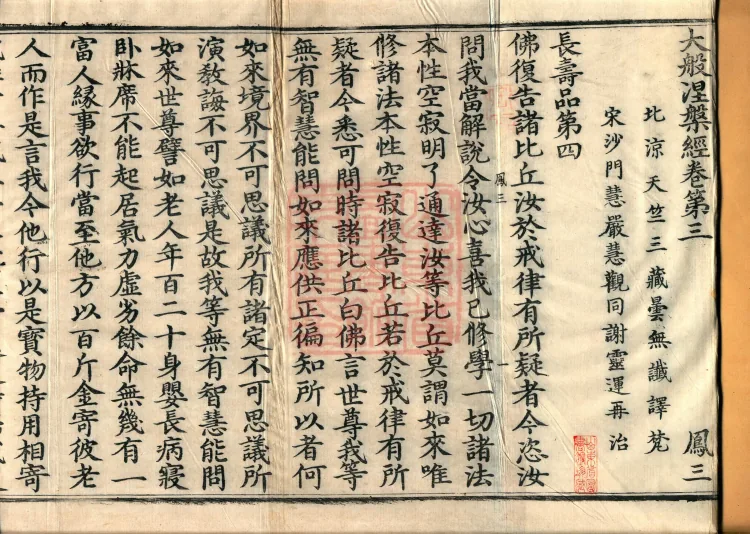 大般涅槃經卷第三 鳳三
北涼天竺三藏曇無讖譯梵
宋沙門慧嚴慧觀同謝靈運再治
長壽品第四
佛復告諸比丘汝於戒律有所疑者今恣汝
鳳三 一
問我當解說令汝心喜我已修學一切諸法
本性空寂明了通達汝等比丘莫謂如來唯
修諸法本性空寂復告比丘若於戒律有所
疑者今悉可問時諸比丘白佛言世尊我等
無有智慧能問如來應供正徧知所以者何
如來境界不可思議所有諸定不可思議所
演教誨不可思議是故我等無有智慧能問
如來世尊譬如老人年百二十身嬰長病寢
卧牀席不能起居氣力虛劣餘命無幾有一
富人緣事欲行當至他方以百斤金寄彼老
人而作是言我今他行以是寶物持用相寄